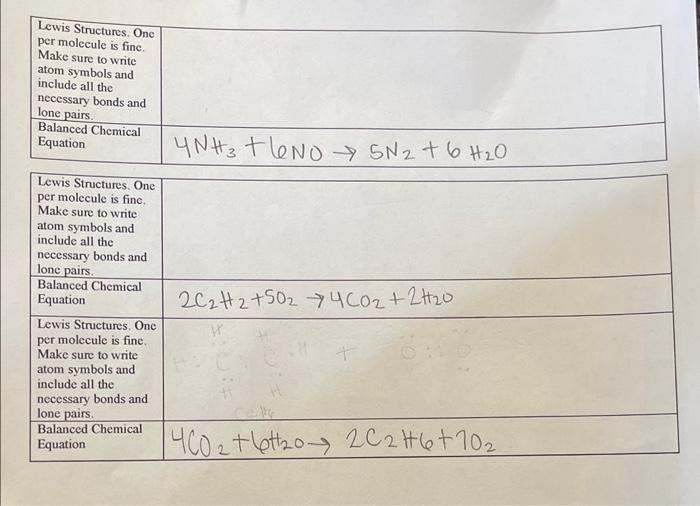 Lewis Structures. One
per molecule is fine.
Make sure to write
atom symbols and
include all the
necessary bonds and
lone pairs.
Balanced Chemical
Equation
4NH3 + 6NO → 5N2 + 6 H2O
Lewis Structures. One
per molecule is fine.
Make sure to write
atom symbols and
include all the
necessary bonds and
lone pairs.
Balanced Chemical
Equation
2C2H2 + 5O2 → 4CO2 + 2H2O
Lewis Structures. One
per molecule is fine.
Make sure to write
atom symbols and
include all the
necessary bonds and
lone pairs.
H H
H : C : C : H + O : : O
H H
Balanced Chemical
Equation
4CO2 + 6H2O → 2C2H6 + 7O2